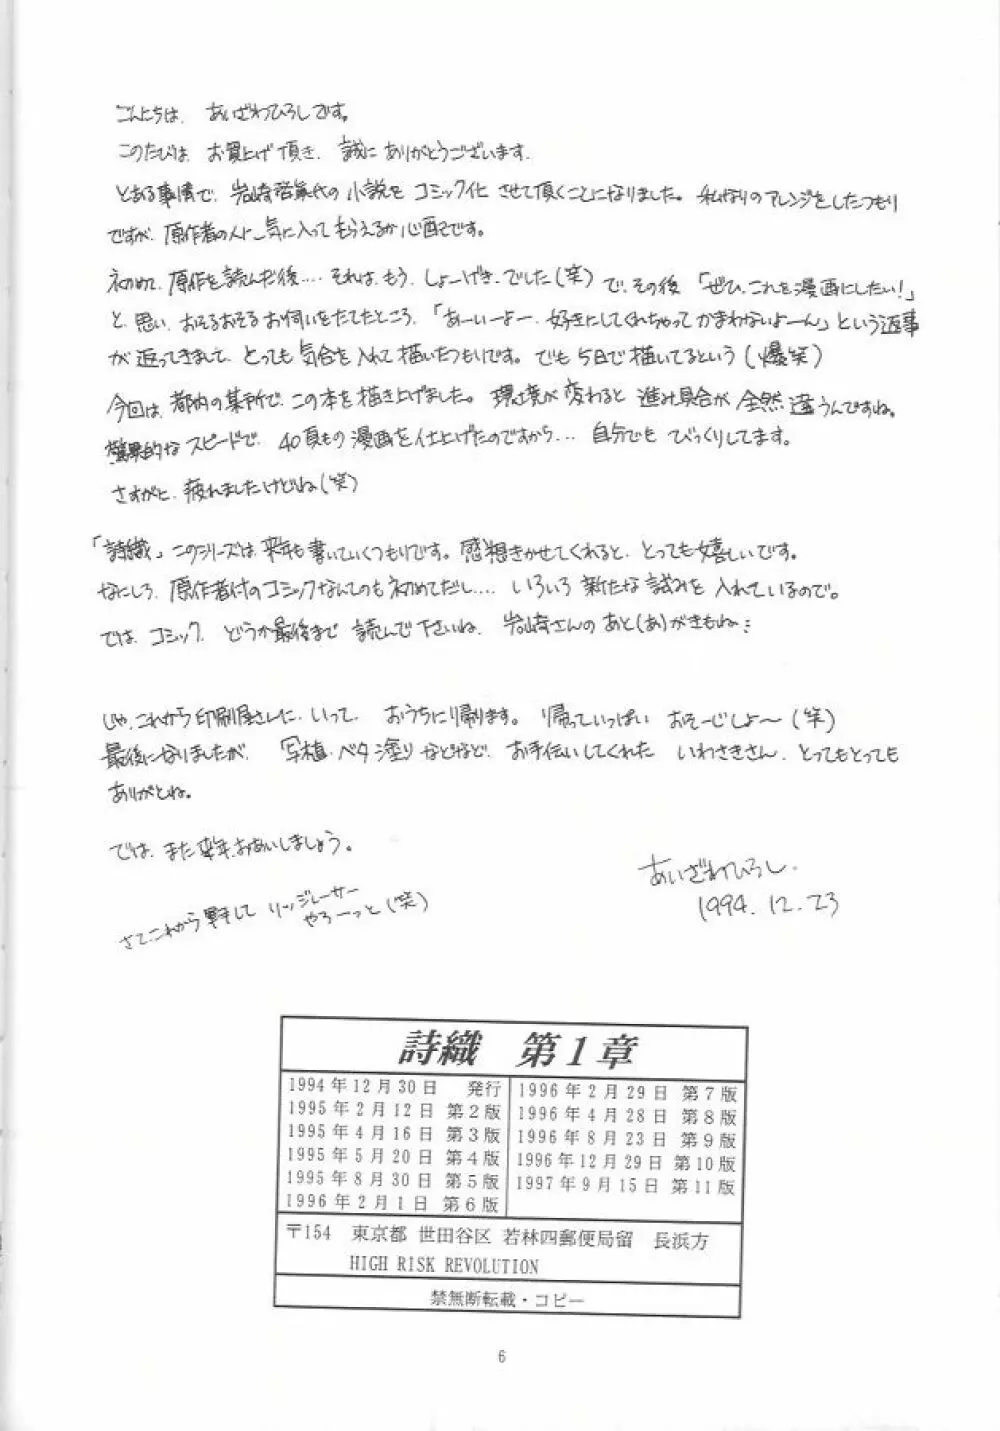 こんにちは、あいざわひろしです。
このたびは、お買上げ頂き、誠にありがとうございます。
とある事情で、岩崎啓眞代の小説をコミック化させて頂くことになりました。私なりのアレンジをしたつもり
ですが、原作者の人に、気に入ってもらえるか心配です。
初めて、原作を読んだ後‥‥それは、もう、しょーげき、でした(笑)で、その後「ぜひ、これを漫画にしたい!」
と、思い、おそるおそるお伺いをたてたところ、「あーいーよー、好きにしてくれちゃってかまわないよーん」という返事
が返ってきまして、とっても気合を入れて描いたつもりです。でも5日で描いてるという(爆笑)
今回は、都内の某所で、この本を描き上げました。環境が変わると進み具合が全然違うんですね。
驚異的なスピードで、40頁もの漫画を仕上げたのですから‥‥自分でもびっくりしてます。
さすがに、疲れましたけどね(笑)
「詩織」このシリーズは、来年も書いていくつもりです。感想きかせてくれると、とっても嬉しいです。
なにしろ、原作者付のコミックなんてのも初めてだし‥‥いろいろ新たな試みを入れているので。
では、コミック、どうか最後まで読んで下さいね、岩崎さんのあと(あ)がきもね…
じゃ、これから印刷屋さんに、いって、おうちに帰ります。帰っていっぱいおそーじしよ〜(笑)
最後になりましたが、写植・ベタ塗りなどなど、お手伝いしてくれたいわさきさん、とってもとっても
ありがとね。
では、また来年、おあいしましょう。
あいざわひろし.
1994.12.23
さて、これから寝して リッジレーサー
やろーっと(笑)
詩織 第1章
1994年12月30日 発行
1995年2月12日 第2版
1995年4月16日 第3版
1995年5月20日 第4版
1995年8月30日 第5版
1996年2月1日 第6版
1996年2月29日 第7版
1996年4月28日 第8版
1996年8月23日 第9版
1996年12月29日 第10版
1997年9月15日 第11版
〒154 東京都 世田谷区 若林四郵便局留 長浜方
HIGH RISK REVOLUTION
禁無断転載・コピー
6